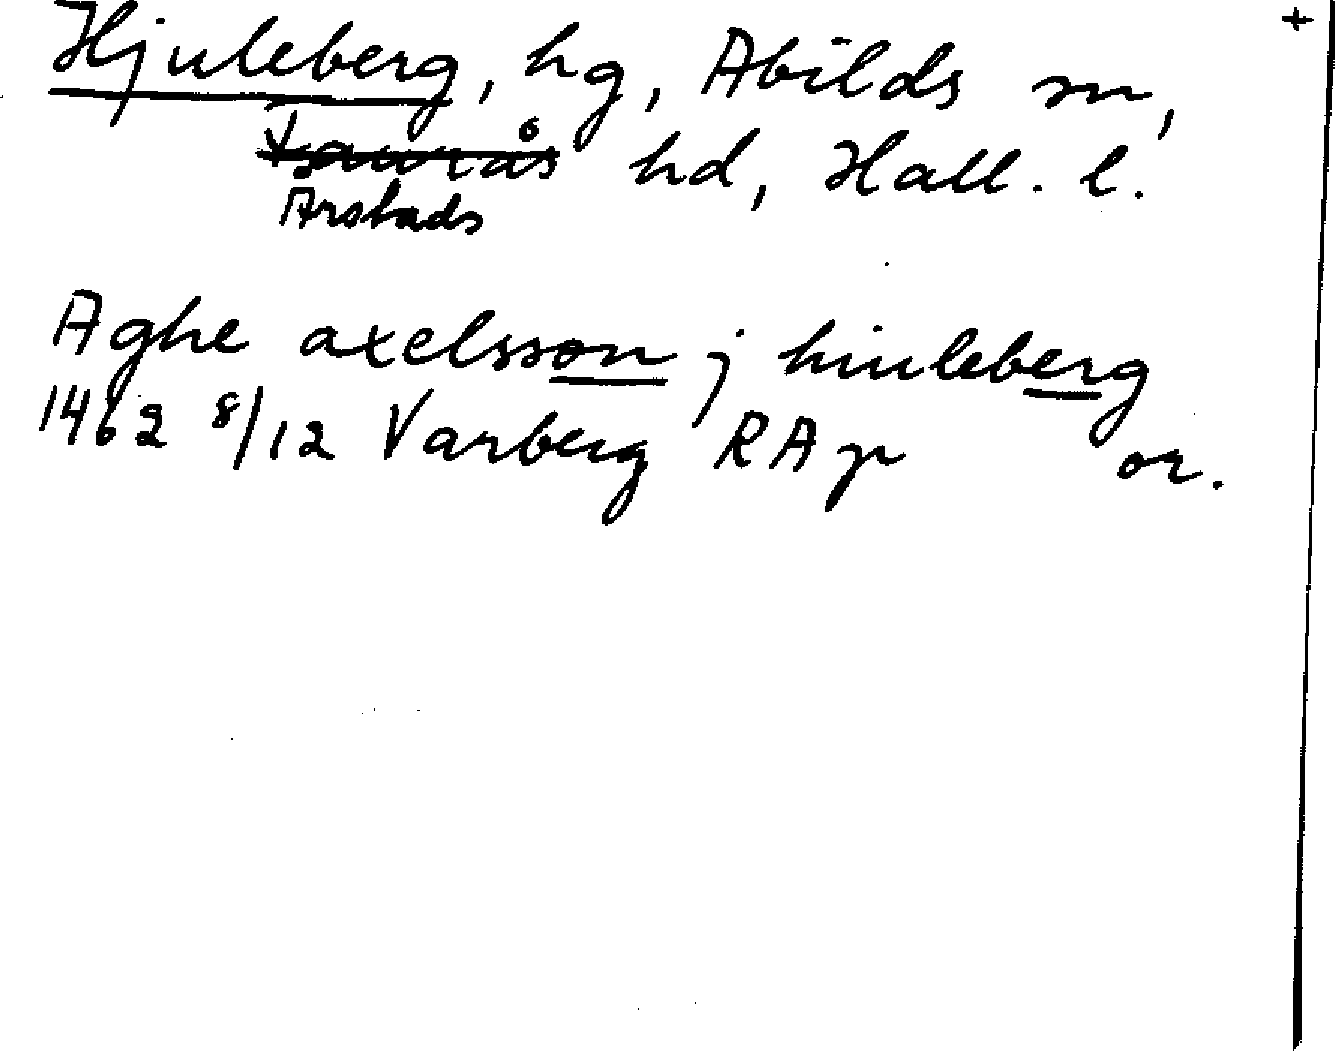 Hjuleberg, hg, Abilds sn, +
hd, Hall. l.
Årstads
Aghe axelsson j hiuleberg
1462 8/12 Varberg RAp or.